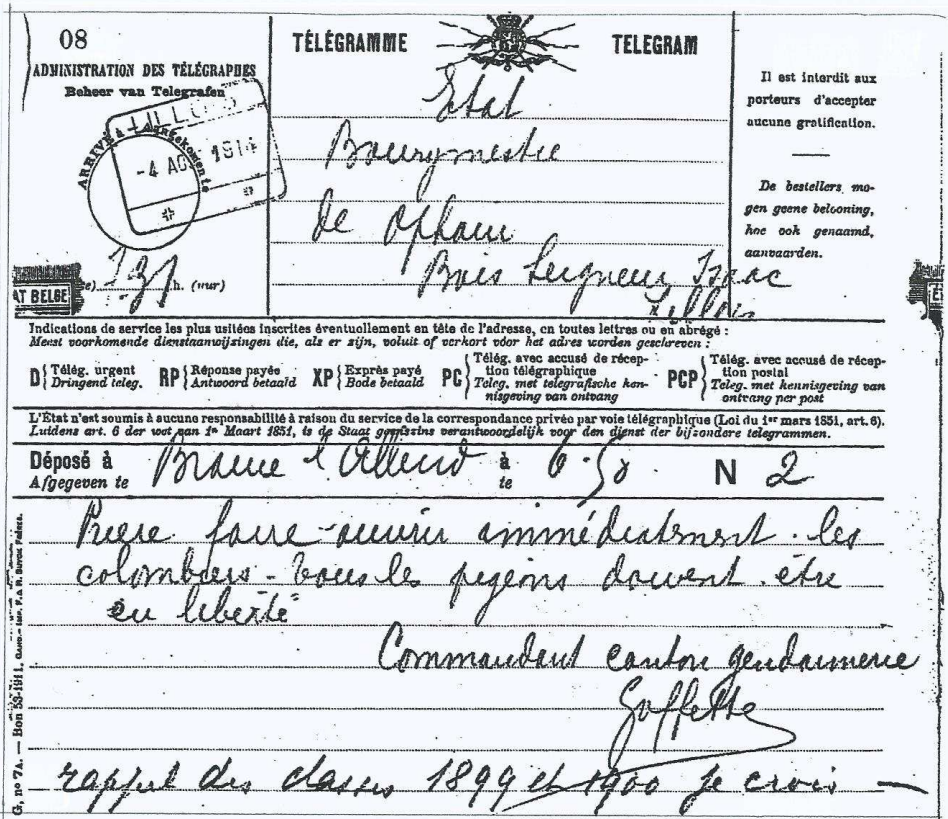 08
TÉLÉGRAMME
TELEGRAM
ADMINISTRATION DES TÉLÉGRAPHES
Beheer van Telegrafen
LILLOIS
ARRIVÉ à - Aangekomen te
-4 AOU 1914
h. (uur)
AT BELGE
Etat
Bourgmestre
de Ophain
Bois Seigneur Isaac
Lillois
Il est interdit aux
porteurs d'accepter
aucune gratification.
De bestellers mo-
gen geene belooning,
hoe ook genaamd,
aanvaarden.
Indications de service les plus usitées inscrites éventuellement en tête de l'adresse, en toutes lettres ou en abrégé :
Meest voorkomende dienstaanwijzingen die, als er zijn, voluit of verkort vóór het adres worden geschreven :
D { Télég. urgent
Dringend teleg.
RP { Réponse payée
Antwoord betaald
XP { Exprès payé
Bode betaald
PC { Télég. avec accusé de récep-
tion télégraphique
Teleg. met telegrafische ken-
nisgeving van ontvang
PCP { Télég. avec accusé de récep-
tion postal
Teleg. met kennisgeving van
ontvang per post
L'État n'est soumis à aucune responsabilité à raison du service de la correspondance privée par voie télégraphique (Loi du 1er mars 1851, art. 6).
Luidens art. 6 der wet van 1n Maart 1851, is de Staat geenszins verantwoordelijk voor den dienst der bijzondere telegrammen.
Déposé à Braine l'Alleud à 6.50 N 2
Afgegeven te te
Prière faire ouvrir immédiatement les
colombiers - tous les pigeons doivent être
en liberté
Commandant canton gendarmerie
Goffette
rappel des classes 1899 et 1900 je crois —
G, no 7A. — Bon 53-1911.